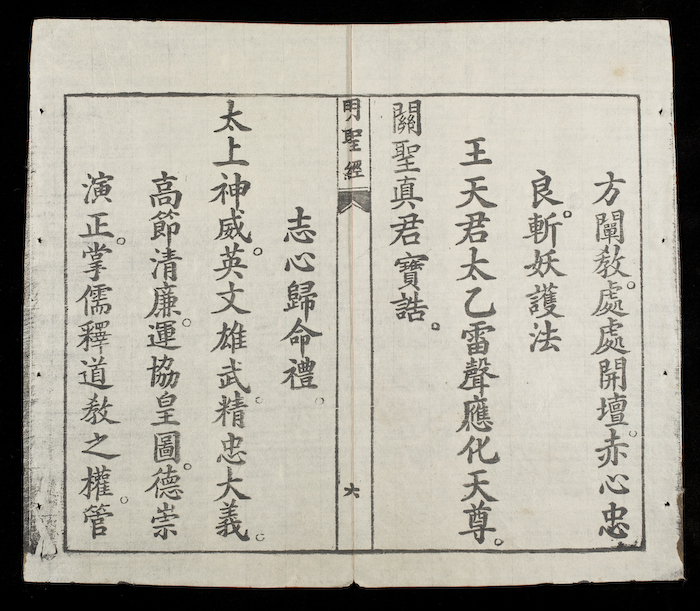 方闡教。處處開壇。赤心忠
良。斬妖護法
王天君太乙雷聲應化天尊。
關聖真君寶誥。
明聖經
六
志心歸命禮。
太上神威。英文雄武。精忠大義。
高節清廉。運協皇圖。德崇
演正。掌儒釋道教之權。管